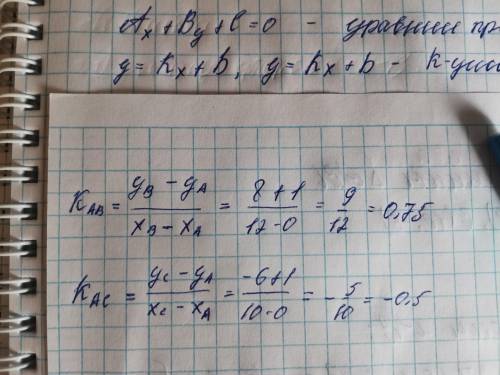 Ax + By + C = 0 - уравнин пр
y = kx + b, y = kx + b - k-
K_AB = (y_B - y_A) / (x_B - x_A) = (8 + 1) / (12 - 0) = 9/12 = 0,75
K_AC = (y_C - y_A) / (x_C - x_A) = (-6 + 1) / (10 - 0) = -5/10 = -0,5